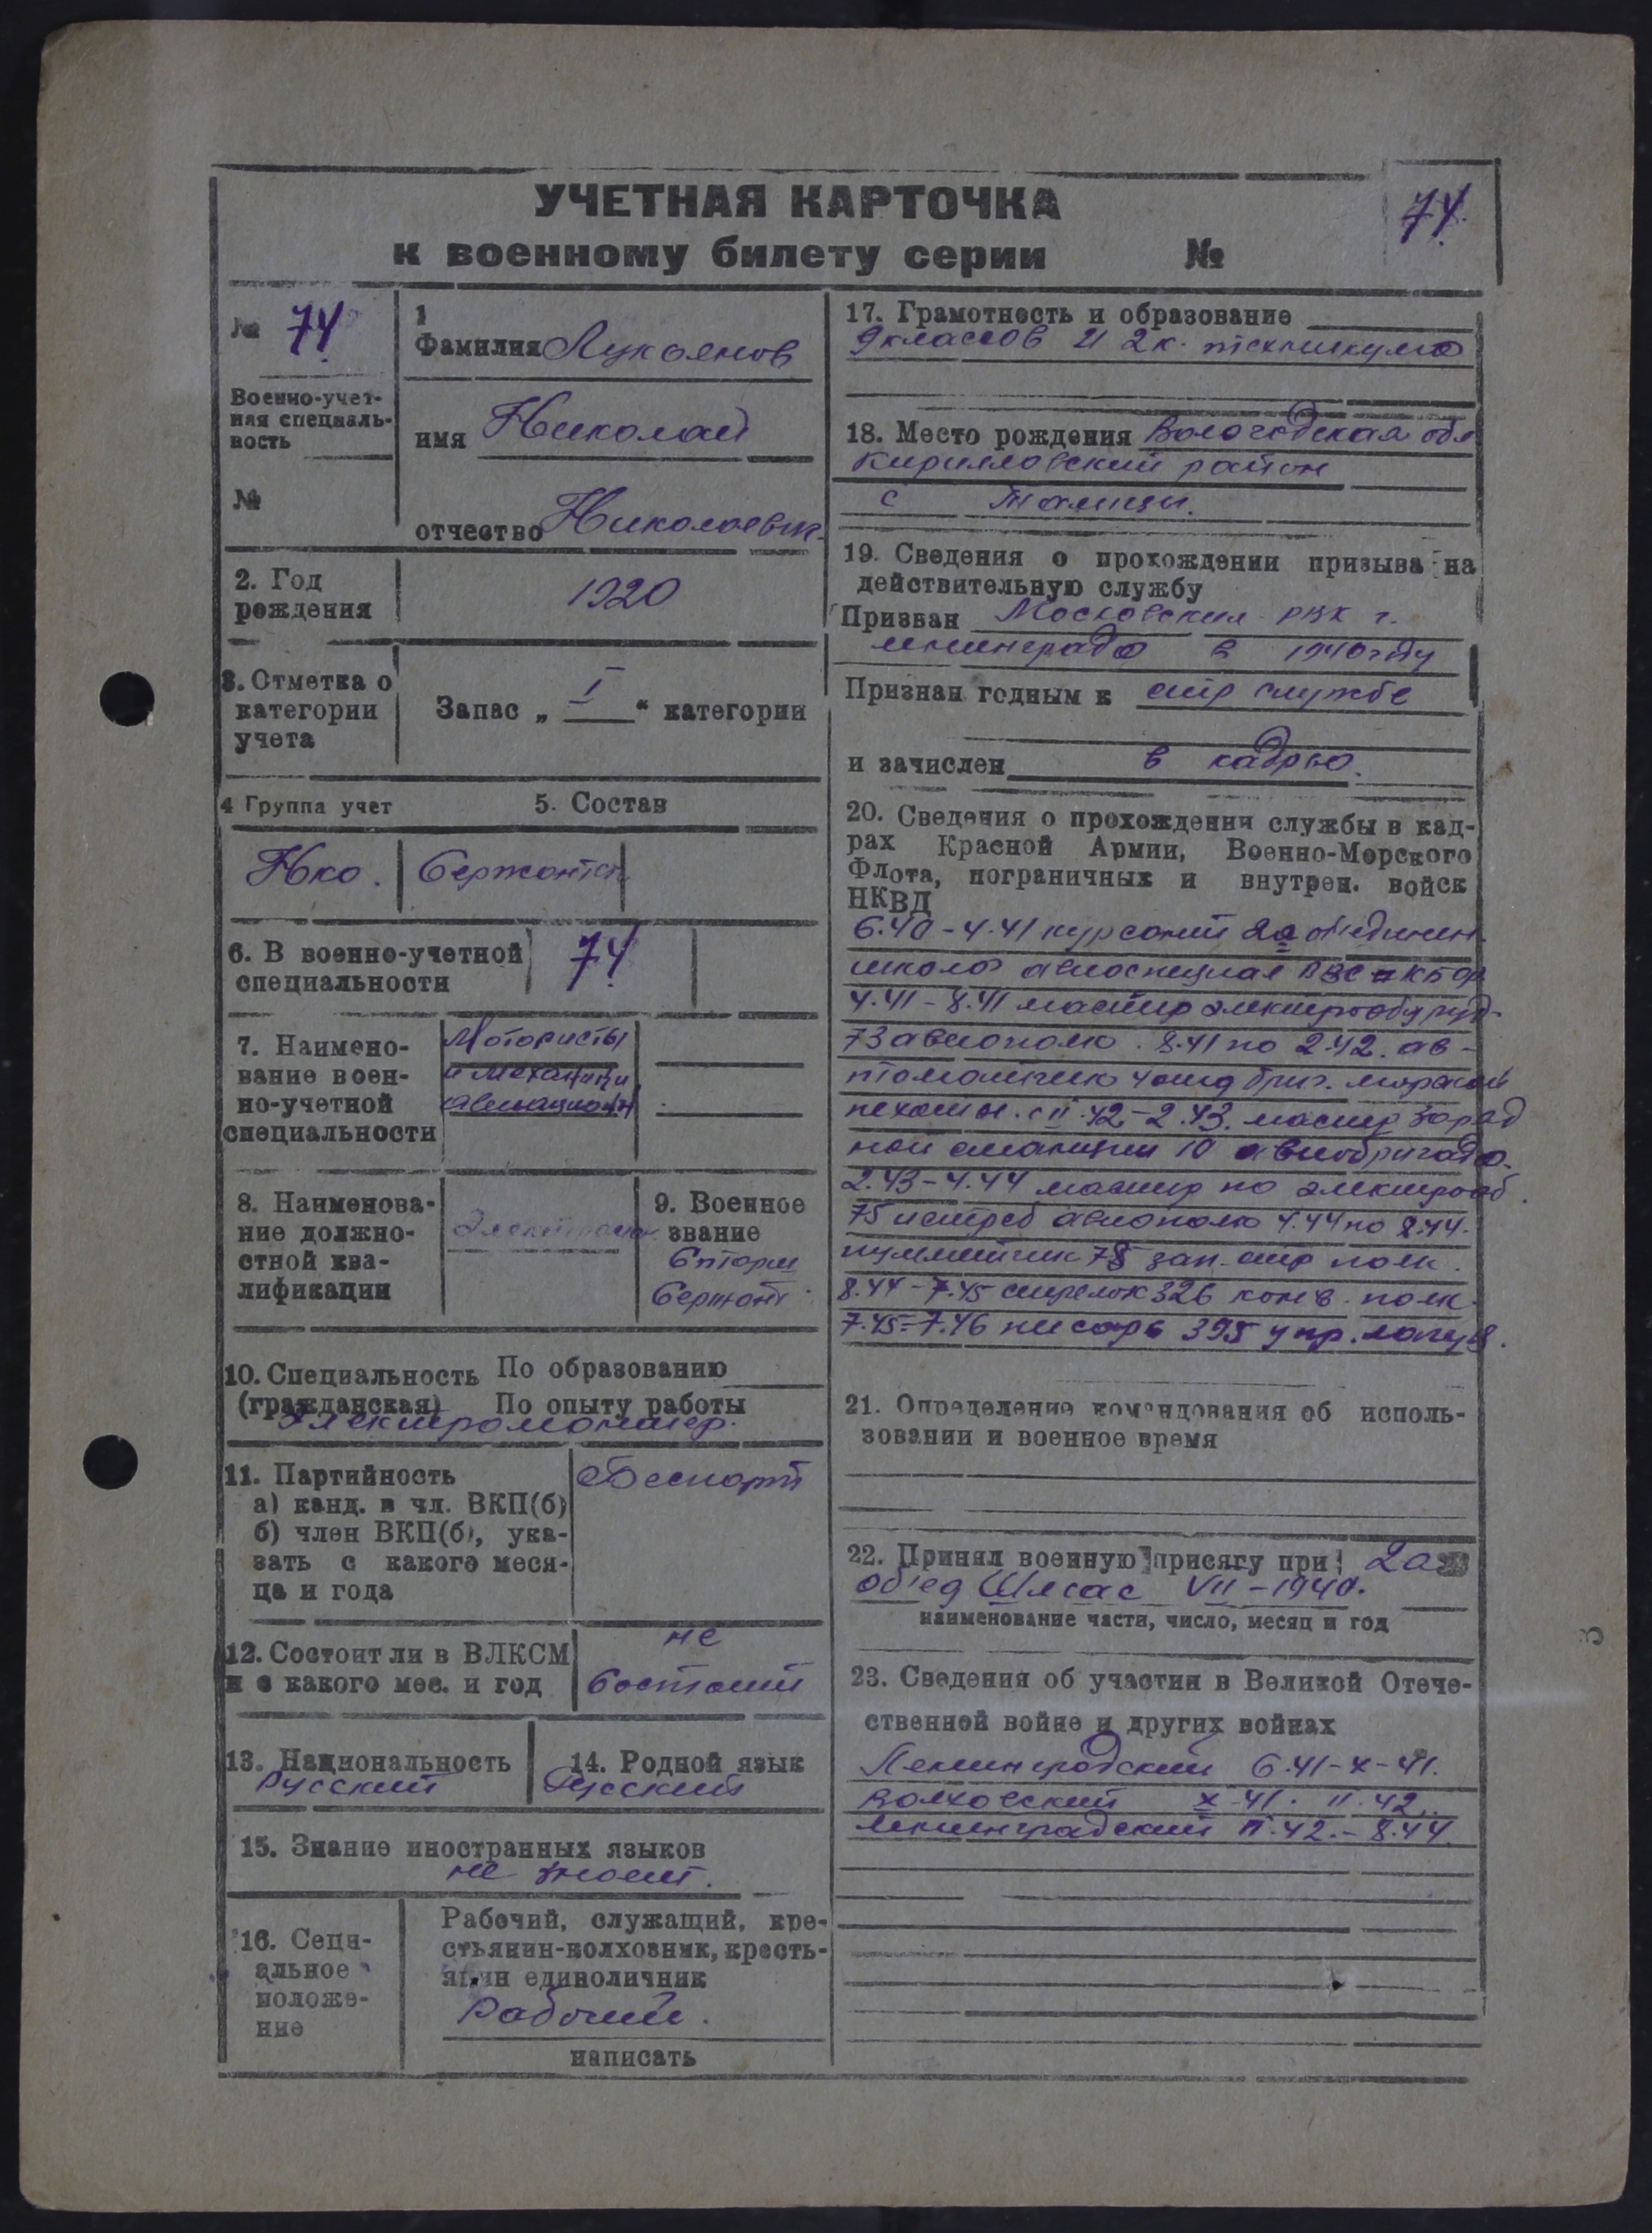 УЧЕТНАЯ КАРТОЧКА
к военному билету серии №
74
№ 74
Военно-учет-
ная специаль-
ность
№
1
Фамилия Лукоянов
имя Николай
отчество Николаевич
2. Год
рождения
1920
3. Отметка о
категории
учета
Запас „ I “ категории
4 Группа учет
5. Состав
НКО.
Сержантск
6. В военно-учетной
специальности
74
7. Наимено-
вание воен-
но-учетной
специальности
Мотористы
и механики
авиационн
8. Наименова-
ние должно-
стной ква-
лификации
9. Военное
звание
Старш
Сержант
10. Специальность По образованию
(гражданская) По опыту работы
Электромонтер.
11. Партийность
а) канд. в чл. ВКП(б)
б) член ВКП(б), ука-
зать с какого меся-
ца и года
Беспарт
12. Состоит ли в ВЛКСМ
и с какого мес. и год
не
состоит
13. Национальность
Русский
14. Родной язык
Русский
15. Знание иностранных языков
не знает.
16. Соци-
альное
положе-
ние
Рабочий, служащий, кре-
стьянин-колхозник, кресть-
янин единоличник
Рабочий.
написать
17. Грамотность и образование
9 классов и 2 к. техникума
18. Место рождения Вологодская обл
Кирилловский район
с Талицы.
19. Сведения о прохождении призыва на
действительную службу
Призван Московским РВК г.
Ленинграда в 1940 году
Признан годным к стр службе
и зачислен в кадры.
20. Сведения о прохождении службы в кад-
рах Красной Армии, Военно-Морского
Флота, пограничных и внутрен. войск
НКВД
6.40 - 4.41 курсант 2а об'единен.
школа авиоспециал ВВС
4.41 - 8.41 мастер электрооборуд-
73 авиополк. 8.41 по 2.42. ав-
томатчик 4 отд бриг. морской
пехоты. с II.42 - 2.43. мастер заряд
ной станции 10 авиобригада.
2.43 - 4.44 мастер по электрооб.
75 истреб авиополк 4.44 по 8.44.
пулеметчик 78 зап. стр полк.
8.44 - 7.45 стрелок 326 конв. полк.
7.45 - 7.46 писарь 395 упр. лагеря.
21. Определение командования об исполь-
зовании и военное время
22. Принял военную присягу при 2а
об'ед Шмас VII - 1940.
наименование части, число, месяц и год
23. Сведения об участии в Великой Отече-
ственной войне и других войнах
Ленинградский 6.41 - X - 41.
Волховский X 41. II.42..
Ленинградский II.42. - 8.44.